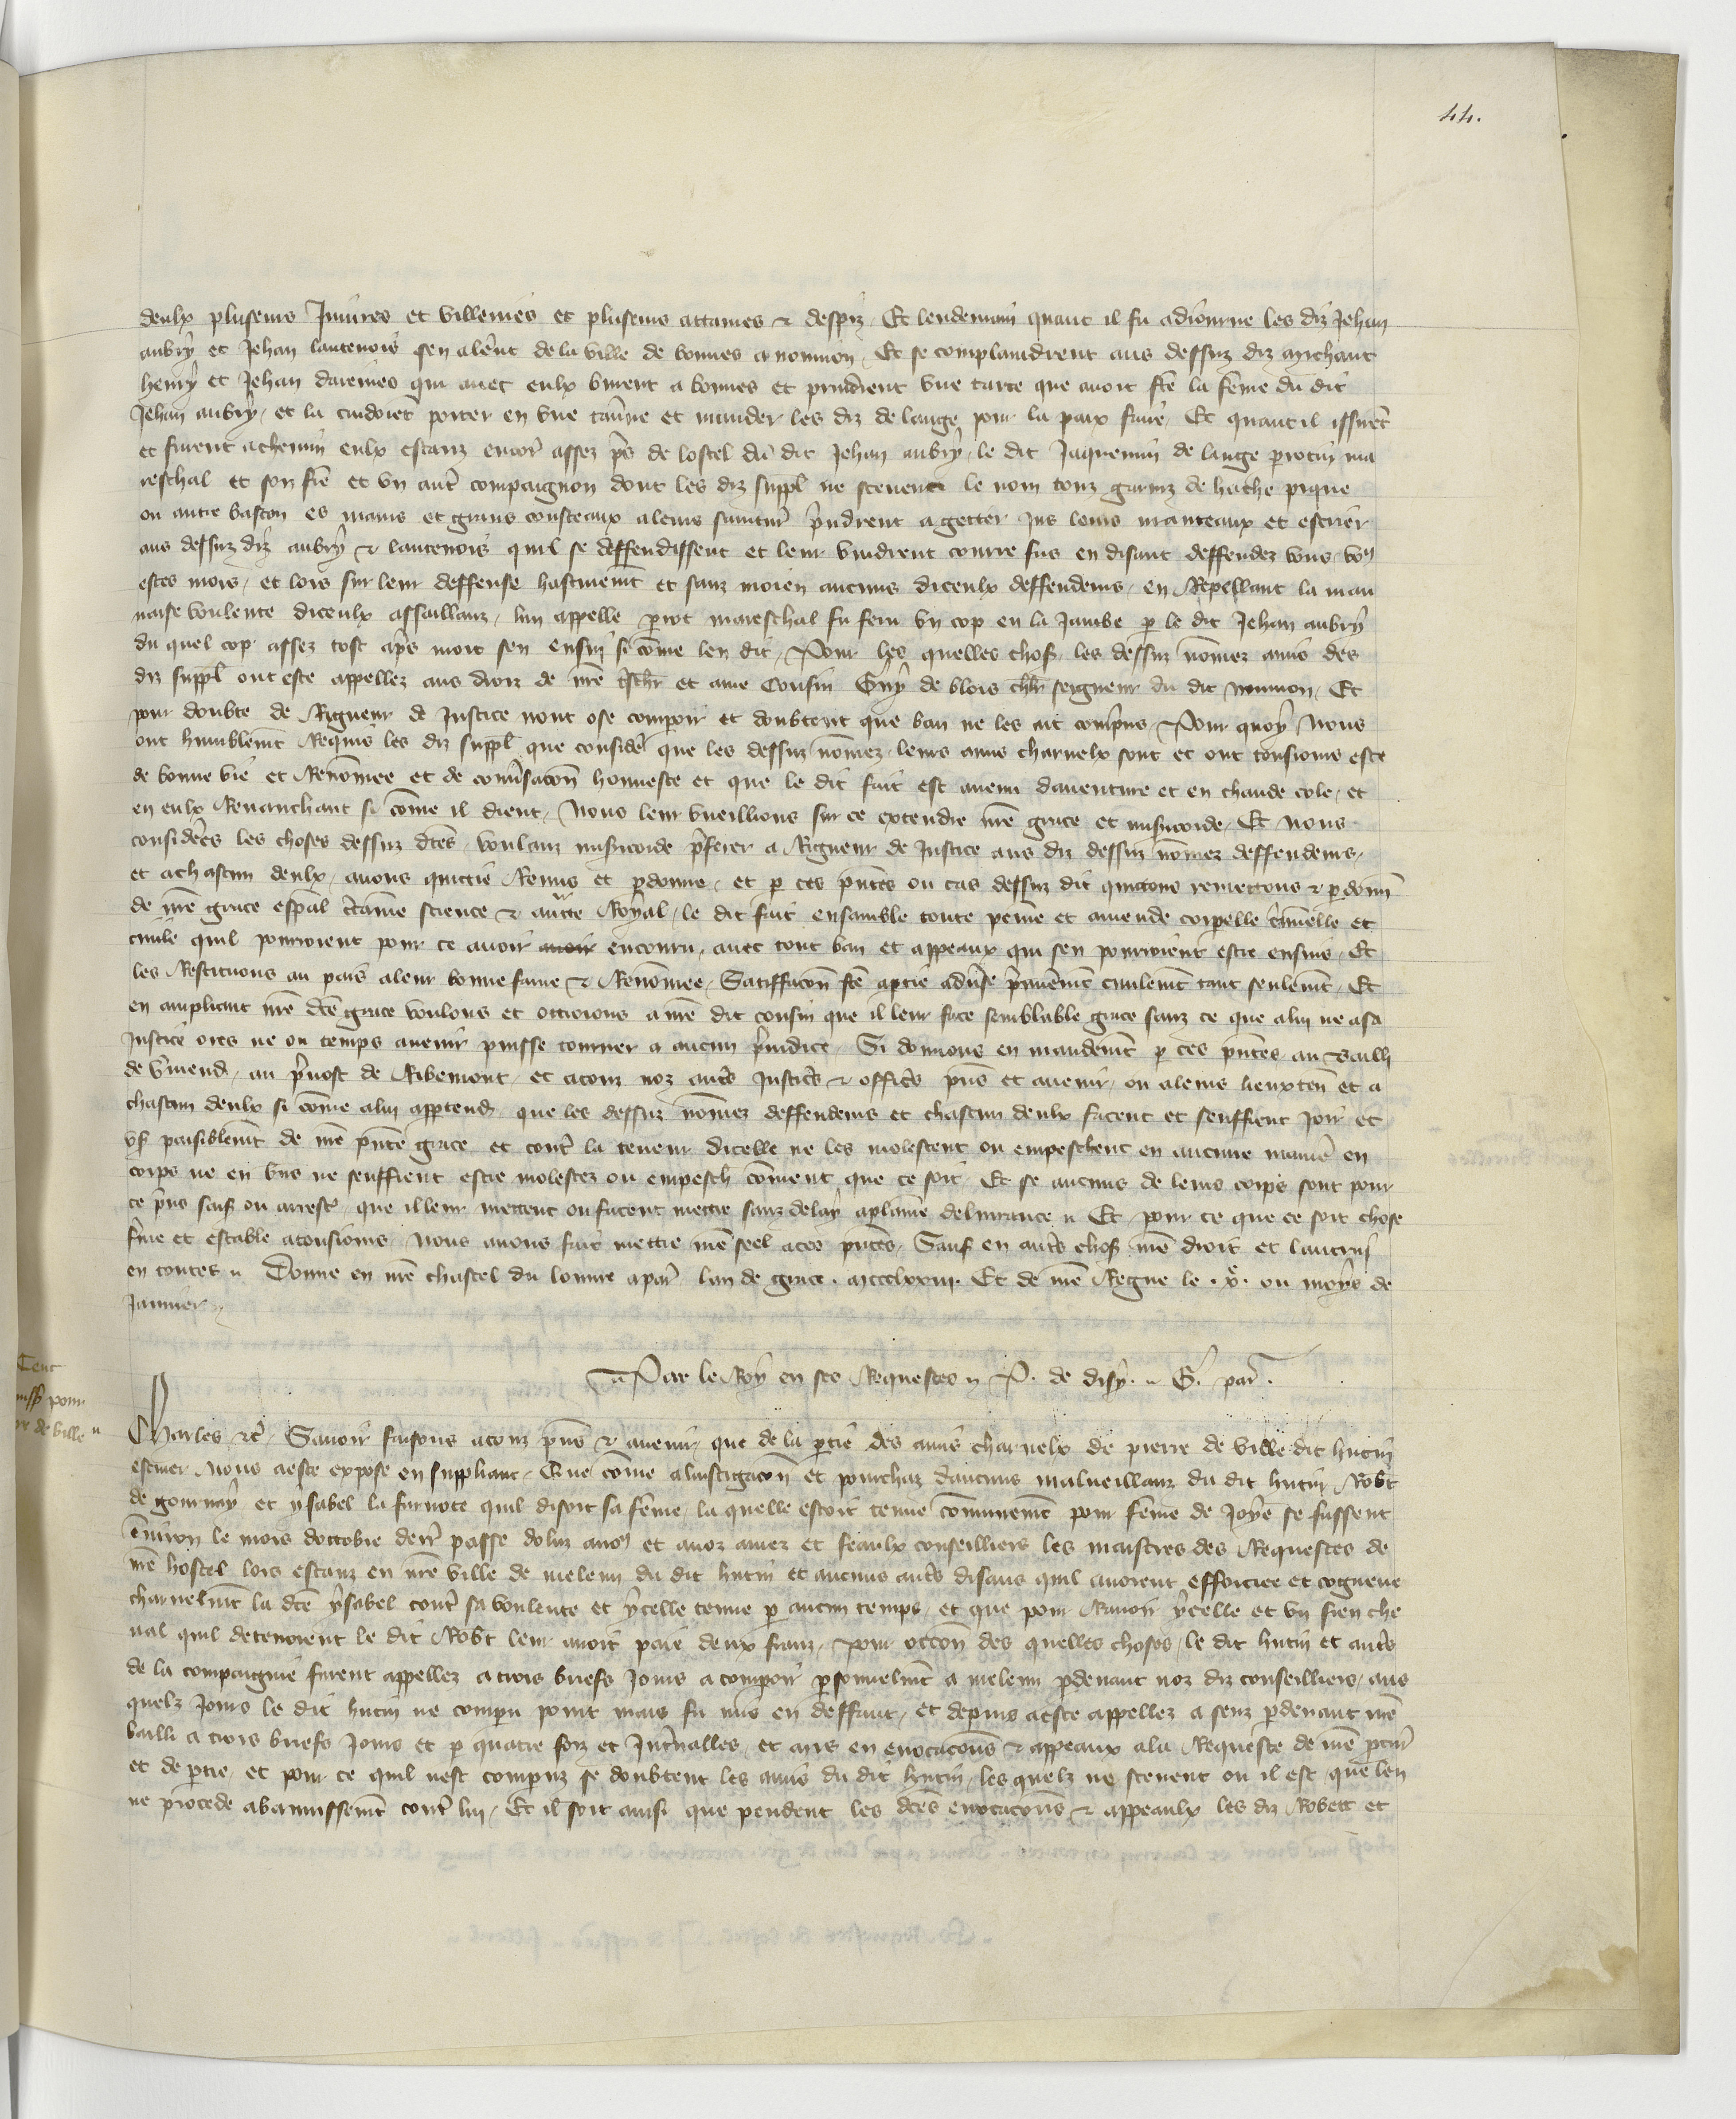 44.
deulx pluseurs Iniures et villenies et pluseurs attaines & despiz. Et lendemain quant il fu adiourne les diz Jehan
aubry et Jehan lautenois sen alerent de la ville de bonnes a nouuion. Et se complaindirent aus dessuz diz michaut
henry et Jehan dareines qui auec eulx vindrent a bonnes et prindrent vne tarte que auoit fte la feme du dit
Jehan aubry, et la cuidoiet porter en vne tauerne et mander les diz de lange pour la paix faire, Et quant il issirent
et furent a chemin eulx estanz encor assez pres de lostel du dit Jehan aubry, le dit Jaquemin de lange perotin ma
reschal et son fre et vn autre compaignon dont les diz suppl ne sceuent le nom touz garniz de hache pique
ou autre baston es mains et grans cousteaux a leurs saintures prindrent a getter jus leurs manteaux et escrier
aus dessuz diz aubry & lautenois quil se deffendissent et leur vindrent courre sus en disant deffendez vous, vous
estes mors, et lors sur leur deffense hastiuement et sanz moien aucuns diceulx deffendeurs, en Repellant la mau
uaise voulente diceulx assaillanz, lun appelle perot mareschal fu feru vn cop en la Jambe par le dit Jehan aubry
du quel cop assez tost apres mort sen ensui si come len dit, Pour les quelles choses les dessuz nomez amis des
diz suppl ont este appellez aus droiz de nre treschr et ame Cousin Guy de blois chlr seigneur du dit nouuion, Et
pour doubte de Rigueur de Justice nont ose comparoir et doubtent que ban ne les ait comprins, Pour quoy Nous
ont humblement Requis les diz suppl que consider que les dessuz nomez leurs amis charnelx sont et ont tousiours este
de bonne vie et Renomee et de conuersacon honneste et que le dit fait est auenu dauenture et en chaude cole, et
en eulx Reuanchant si come il dient, Nous leur vueillions sur ce extendre nre grace et misericorde, Et Nous
considerees les choses dessuz dtes, voulanz misericorde preferer a Rigueur de Justice aus diz dessuz nomez deffendeurs,
et a chascun deulx, auons quictie Remis et pardonne, et par ces presentes ou cas dessuz dit quictons remettons & pardonn
de nre grace espal certaine science & aucte Royal, le dit fait ensamble toute peine et amende corporelle criminelle et
ciuile quil pourroient pour ce auoir encouru, auec tout ban et appeaux qui sen pourroient estre ensuis, Et
les Restituons au pais a leur bonne fame & Renomee, Satiffacon fte a partie aduerse premierement ciuilement tant seulement, Et
en ampliant nre dte grace voulons et ottroions a nre dit cousin que il leur face semblable grace sanz ce que a lui ne a sa
Justice ores ne ou temps auenir puisse tourner a aucun preiudice, Si donnons en mandement par ces presentes au Bailli
de Vermend, au preuost de Ribemont, et a touz noz autres Justiciers & officiers presens et auenir, ou a leurs lieuxten et a
chascun deulx si come a lui appartend que les dessuz nomez deffendeurs et chascun deulx facent et seuffrent Joir et
vser paisiblement de nre presente grace et contre la teneur dicelle ne les molestent ou empeschent en aucune maniere en
corps ne en biens ne seuffrent estre molestez ou empesch coment que ce soit, Et se aucuns de leurs corps sont pour
ce prins saisis ou arrestes, que il leur mettent ou facent mettre sanz delay a plaine deliurance Et pour ce que ce soit chose
ferme et estable a tousiours, Nous auons fait mettre nre seel a ces presentes, Sauf en autres choses nre droit et lautrui
en toutes Donne en nre chastel du louure a paris lan de grace. mccclxxiii. Et de nre Regne le .xe. ou moys de
Januier,
Par le Roy en ses Requestes P. de disy. G. par.
Charles &c, Sauoir faisons a touz presens & auenir, que de la partie des amis charnelx de pierre de ville dit hutin
escuier Nous a este expose en suppliant, Que come a linstigacon et pourchaz daucuns malueillanz du dit hutin Robert
de gournay et ysabel la furnote quil disoit sa feme, la quelle estoit tenue communement pour feme de Joye se fussent
enuiron le mois doctobre derr passe doluz a nous et a noz amez et feaulx conseilliers les maistres des Requestes de
nre hostel lors estanz en nre ville de meleun du dit hutin et aucuns autres disans quil auoient efforciee et cogneue
charnelment la dte ysabel contre sa voulente et ycelle tenue par aucun temps, et que pour Rauoir ycelle et vn sien che
ual quil detenoient le dit Robt leur auoit paie deux frans, pour occon des quelles choses, le dit hutin et autres
de la compaignie furent appellez a trois briefs Jours a comparoir personnelment a meleun par deuant noz diz conseilliers, aus
quelz Jours le dit hutin ne comparu point mais fu mis en deffaut, et depuis a este appellez a senz par deuant nre
bailli a trois briefs Jours et par quatre foiz et Interualles, et mis en euocacons & appeaux a la Requeste de nre procur
et de partie, et pour ce quil nest comparuz se doubtent les amis du dit hutin, les quelz ne sceuent ou il est, que len
ne procede a bannissement contre lui, Et il soit ainsi que pendent les dtes euocacons & appeaulx les diz Robert et